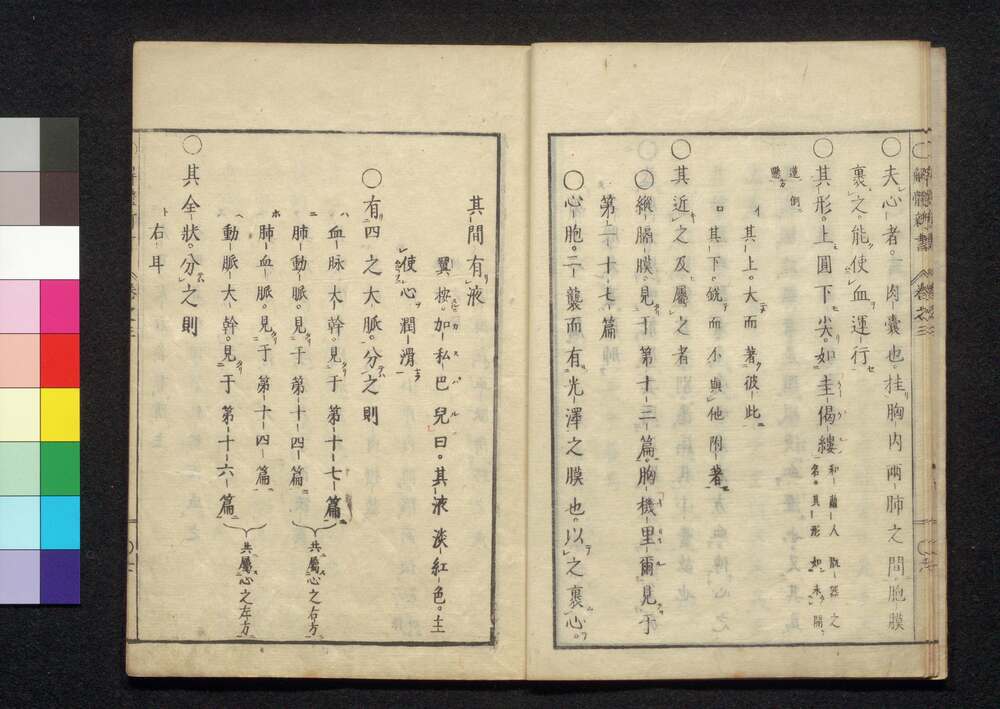 解體新書 卷之三
○夫心者。肉囊也。挂胸内兩肺之間。胞膜
裹之。能使血運行
○其形。上圓下尖。如圭偈縷 和蘭人翫器之名。其形如未開
蓮倒懸
イ其上。大而著彼此
ロ其下。銳而小。與他附著
○其近之及屬之者
○縱膈膜。見于第十三篇。胸機里爾。見于
第二十七篇
○心胞。二襲而有光澤之膜也。以之裹心。
其間有液
翼按。加私巴兒曰。其液淡紅色。主
使心潤滑
○有四之大脈。分之則
ハ血脉大幹。見于第十七篇
ニ肺動脈。見于第十四篇
共屬心之右方
ホ肺血脈。見于第十四篇
ヘ動脈大幹。見于第十六篇
共屬心之左方
○其全狀。分之則
ト右耳